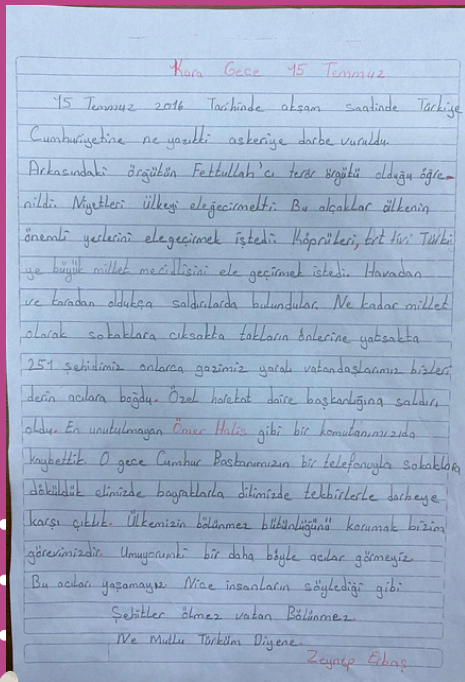 Kara Gece 15 Temmuz
15 Temmuz 2016 Tarihinde akşam saatinde Türkiye
Cumhuriyetine ne yazıkki askeriye darbe vuruldu.
Arkasındaki örgütün Fettullah'cı terör örgütü olduğu öğre-
nildi. Niyetleri ülkeyi eleğecirmekti. Bu alçaklar ülkenin
önemli yerlerini elegeçirmek istedi. Köprüleri, trt tivi Türki
ye büyük millet meclisini ele geçirmek istedi. Havadan
ve karadan oldukça saldırılarda bulundular. Ne kadar millet
olarak sokaklara cıksakta takların önlerine yatsakta
251 şehidimiz onlarca gazimiz yaralı vatandaşlarımız bizleri
derin acılara boğdu. Özel harekat daire başkanlığına saldırı
oldu. En unutulmayan Ömer Halis gibi bir komutanımızıda
kaybettik. O gece Cumhur Baskanımızın bir telefonuyla sokaklara
döküldük elimizde bayraklarla dilimizde tekbirlerle darbeye
karşı çıktık. Ülkemizin bölünmez bütünlüğünü korumak bizim
görevimizdir. Umuyorumki bir daha böyle acılar görmeyiz
Bu acıları yaşamayız. Nice insanların söylediği gibi
Şehitler ölmez vatan Bölünmez
Ne Mutlu Türküm Diyene.
Zeynep Erbaş